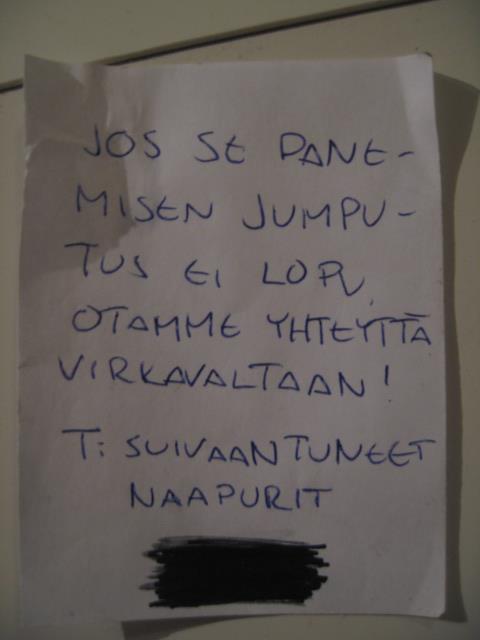 JOS SE PANE-
MISEN JUMPU-
TUS EI LOPU,
OTAMME YHTEYTTÄ
VIRKAVALTAAN!
T: SUIVAANTUNEET
NAAPURIT